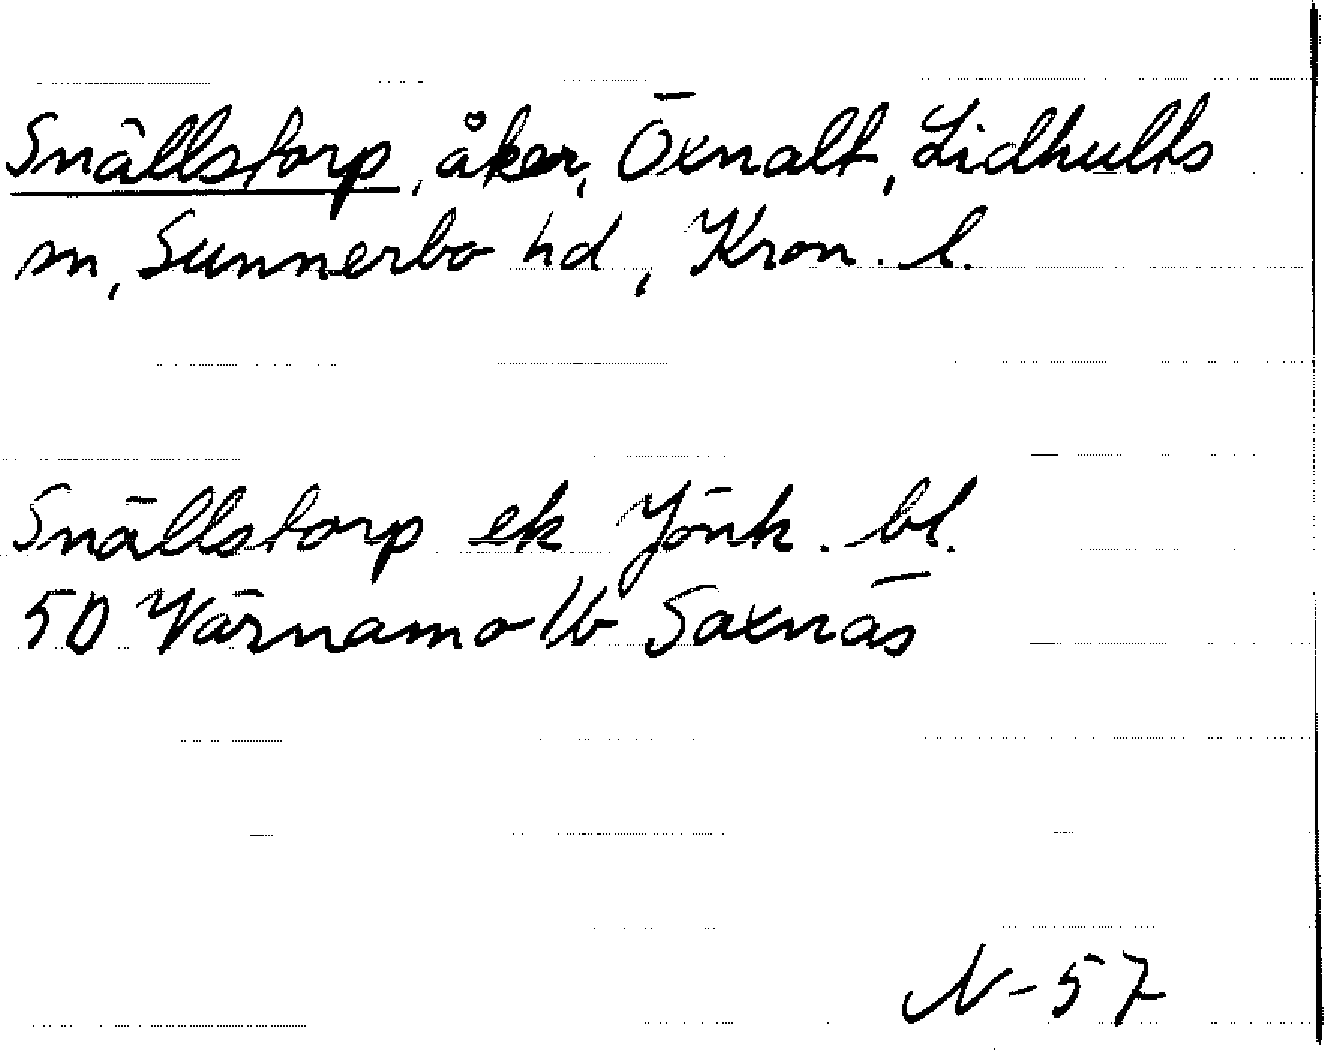 Snällstorp, åker, Öxnalt, Lidhults
sn, Sunnerbo hd, Kron. l.
Snällstorp ek Jönk. bl.
5D Värnamo 1b Saxnäs
N-57